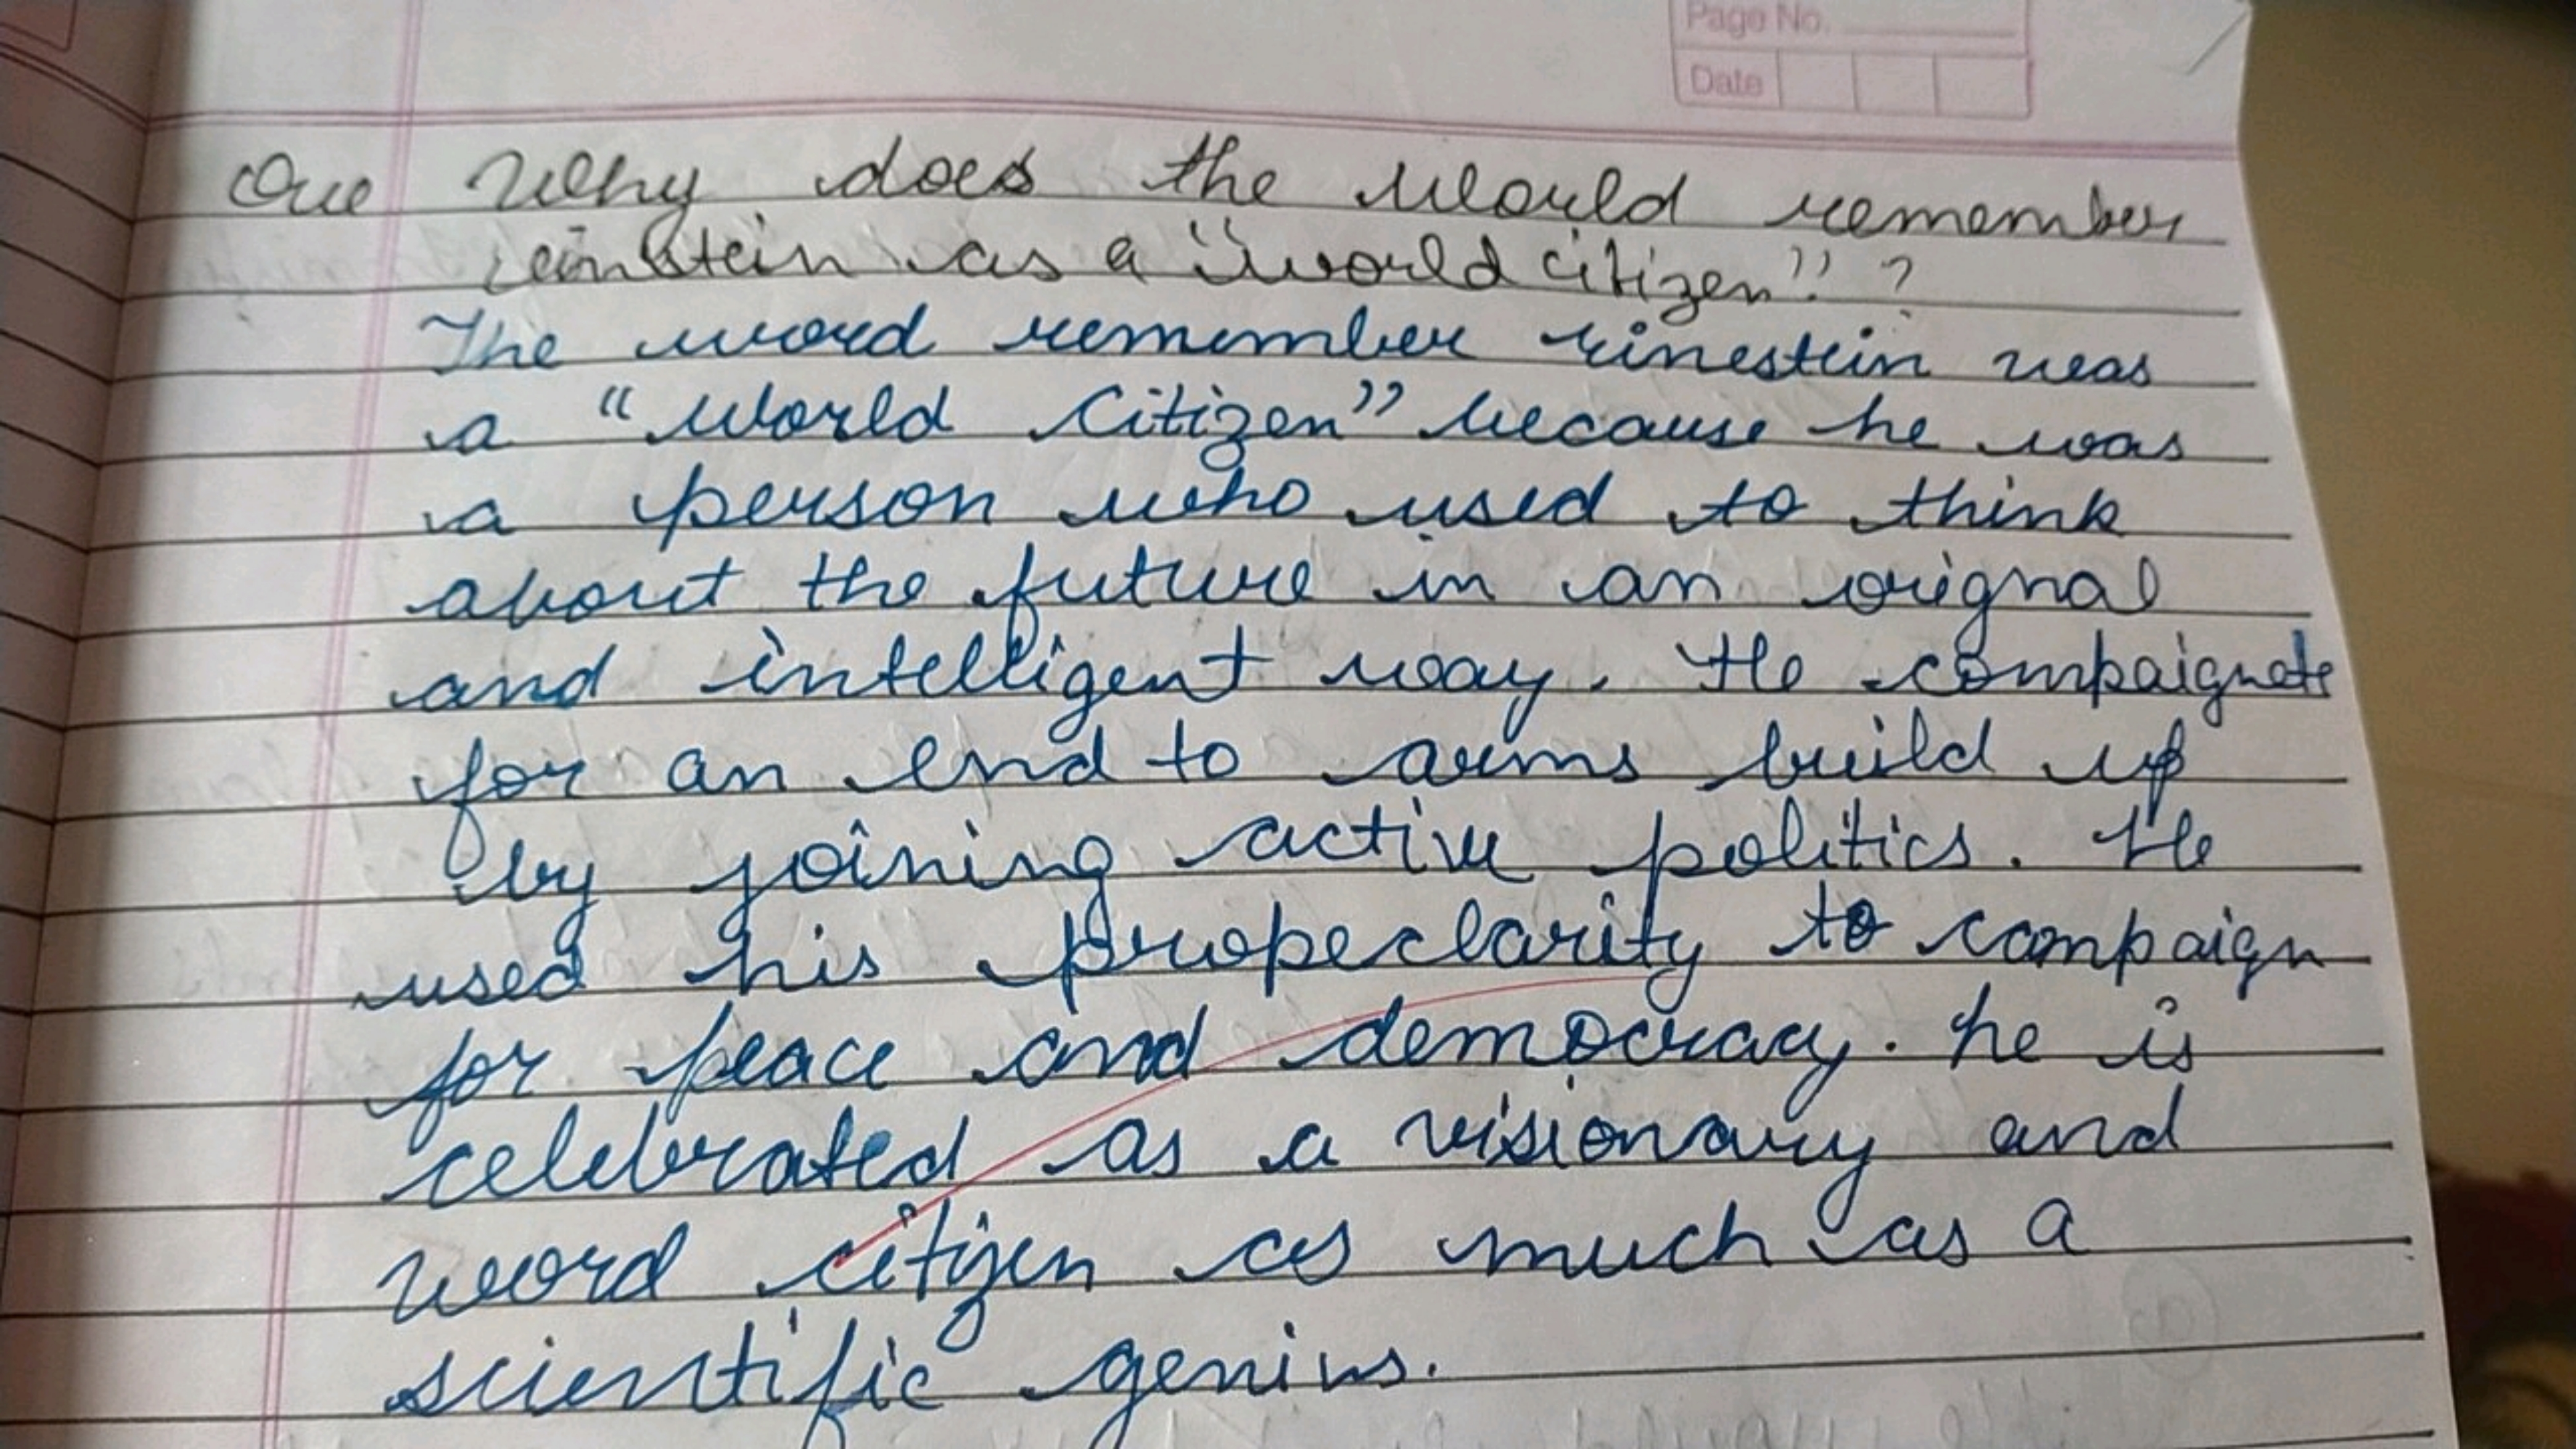 Page No.
Date
Que Why does the world remember
einstein as a "world citizen"?
The word remember einestein was
a "World Citizen" because he was
a person who used to think
about the future in an orignal
and intelligent way. He compaignate
for an end to arms build up
by joining active politics. He
used his propeclarity to campaign
for peace and democracy. he is
celebrated as a visionary and
word citizen as much as a
scientific genius.